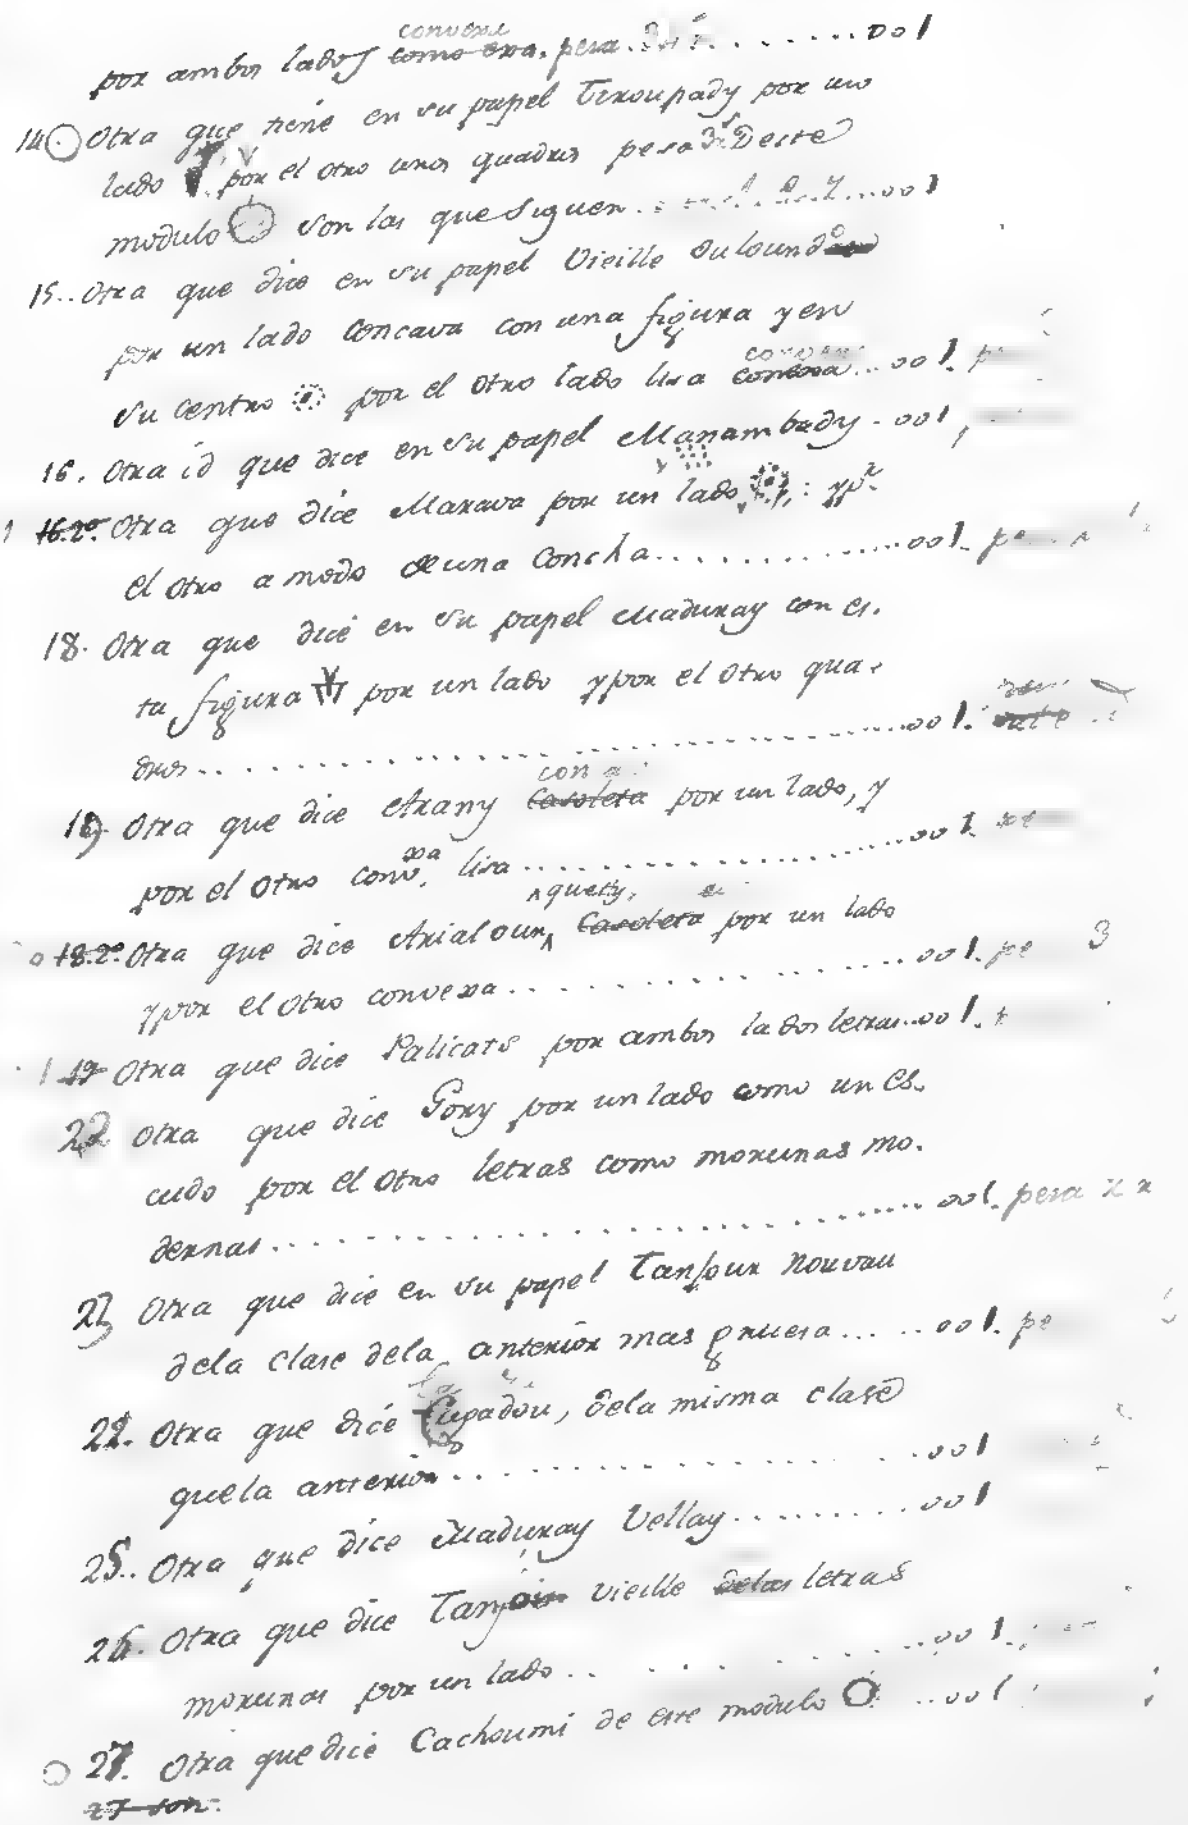 convexa
por ambos lados como era. pesa ........001
14 Otra que tiene en su papel Tiroupady por un
lado y por el otro unos quadros pesa 3 Deste
modulo son las que siguen ....001
15.. Otra que dice en su papel Vieille Ouloundo
por un lado Concava con una figura y en
su centro por el otro lado lisa convexa...001. p
16. Otra id que dice en su papel Manambady. 001,
1 16.2º. Otra que dice Marava por un lado : y pr.
el otro a modo de una Concha..............001. pe
18. Otra que dice en su papel Maduray con es.
ta figura por un lado y por el otro qua.
dros.................................001.
con
19. Otra que dice Arany Casoleta por un lado, y
por el otro convxa. lisa....................001. pe
quety,
0 18.2º. Otra que dice Arialour, Casoleta por un lado
y por el otro convexa.................001. pe 3
1 19 Otra que dice Palicats por ambos lados letras..001.
22 Otra que dice Gory por un lado como un Es.
cudo por el Otro letras como morunas mo.
dernas.................................001. pesa
23 Otra que dice en su papel Tanjour Nouvau
dela clase dela anterior mas gruesa......001. pe
22. Otra que dice padou, dela misma clase
quela anterior..................001
25.. Otra que dice Maduray Vellay.........001
26. Otra que dice Tanjoir vieille delas letras
morunas por un lado..............001.
27. Otra que dice Cachoumi de este modulo ..001
27 son.